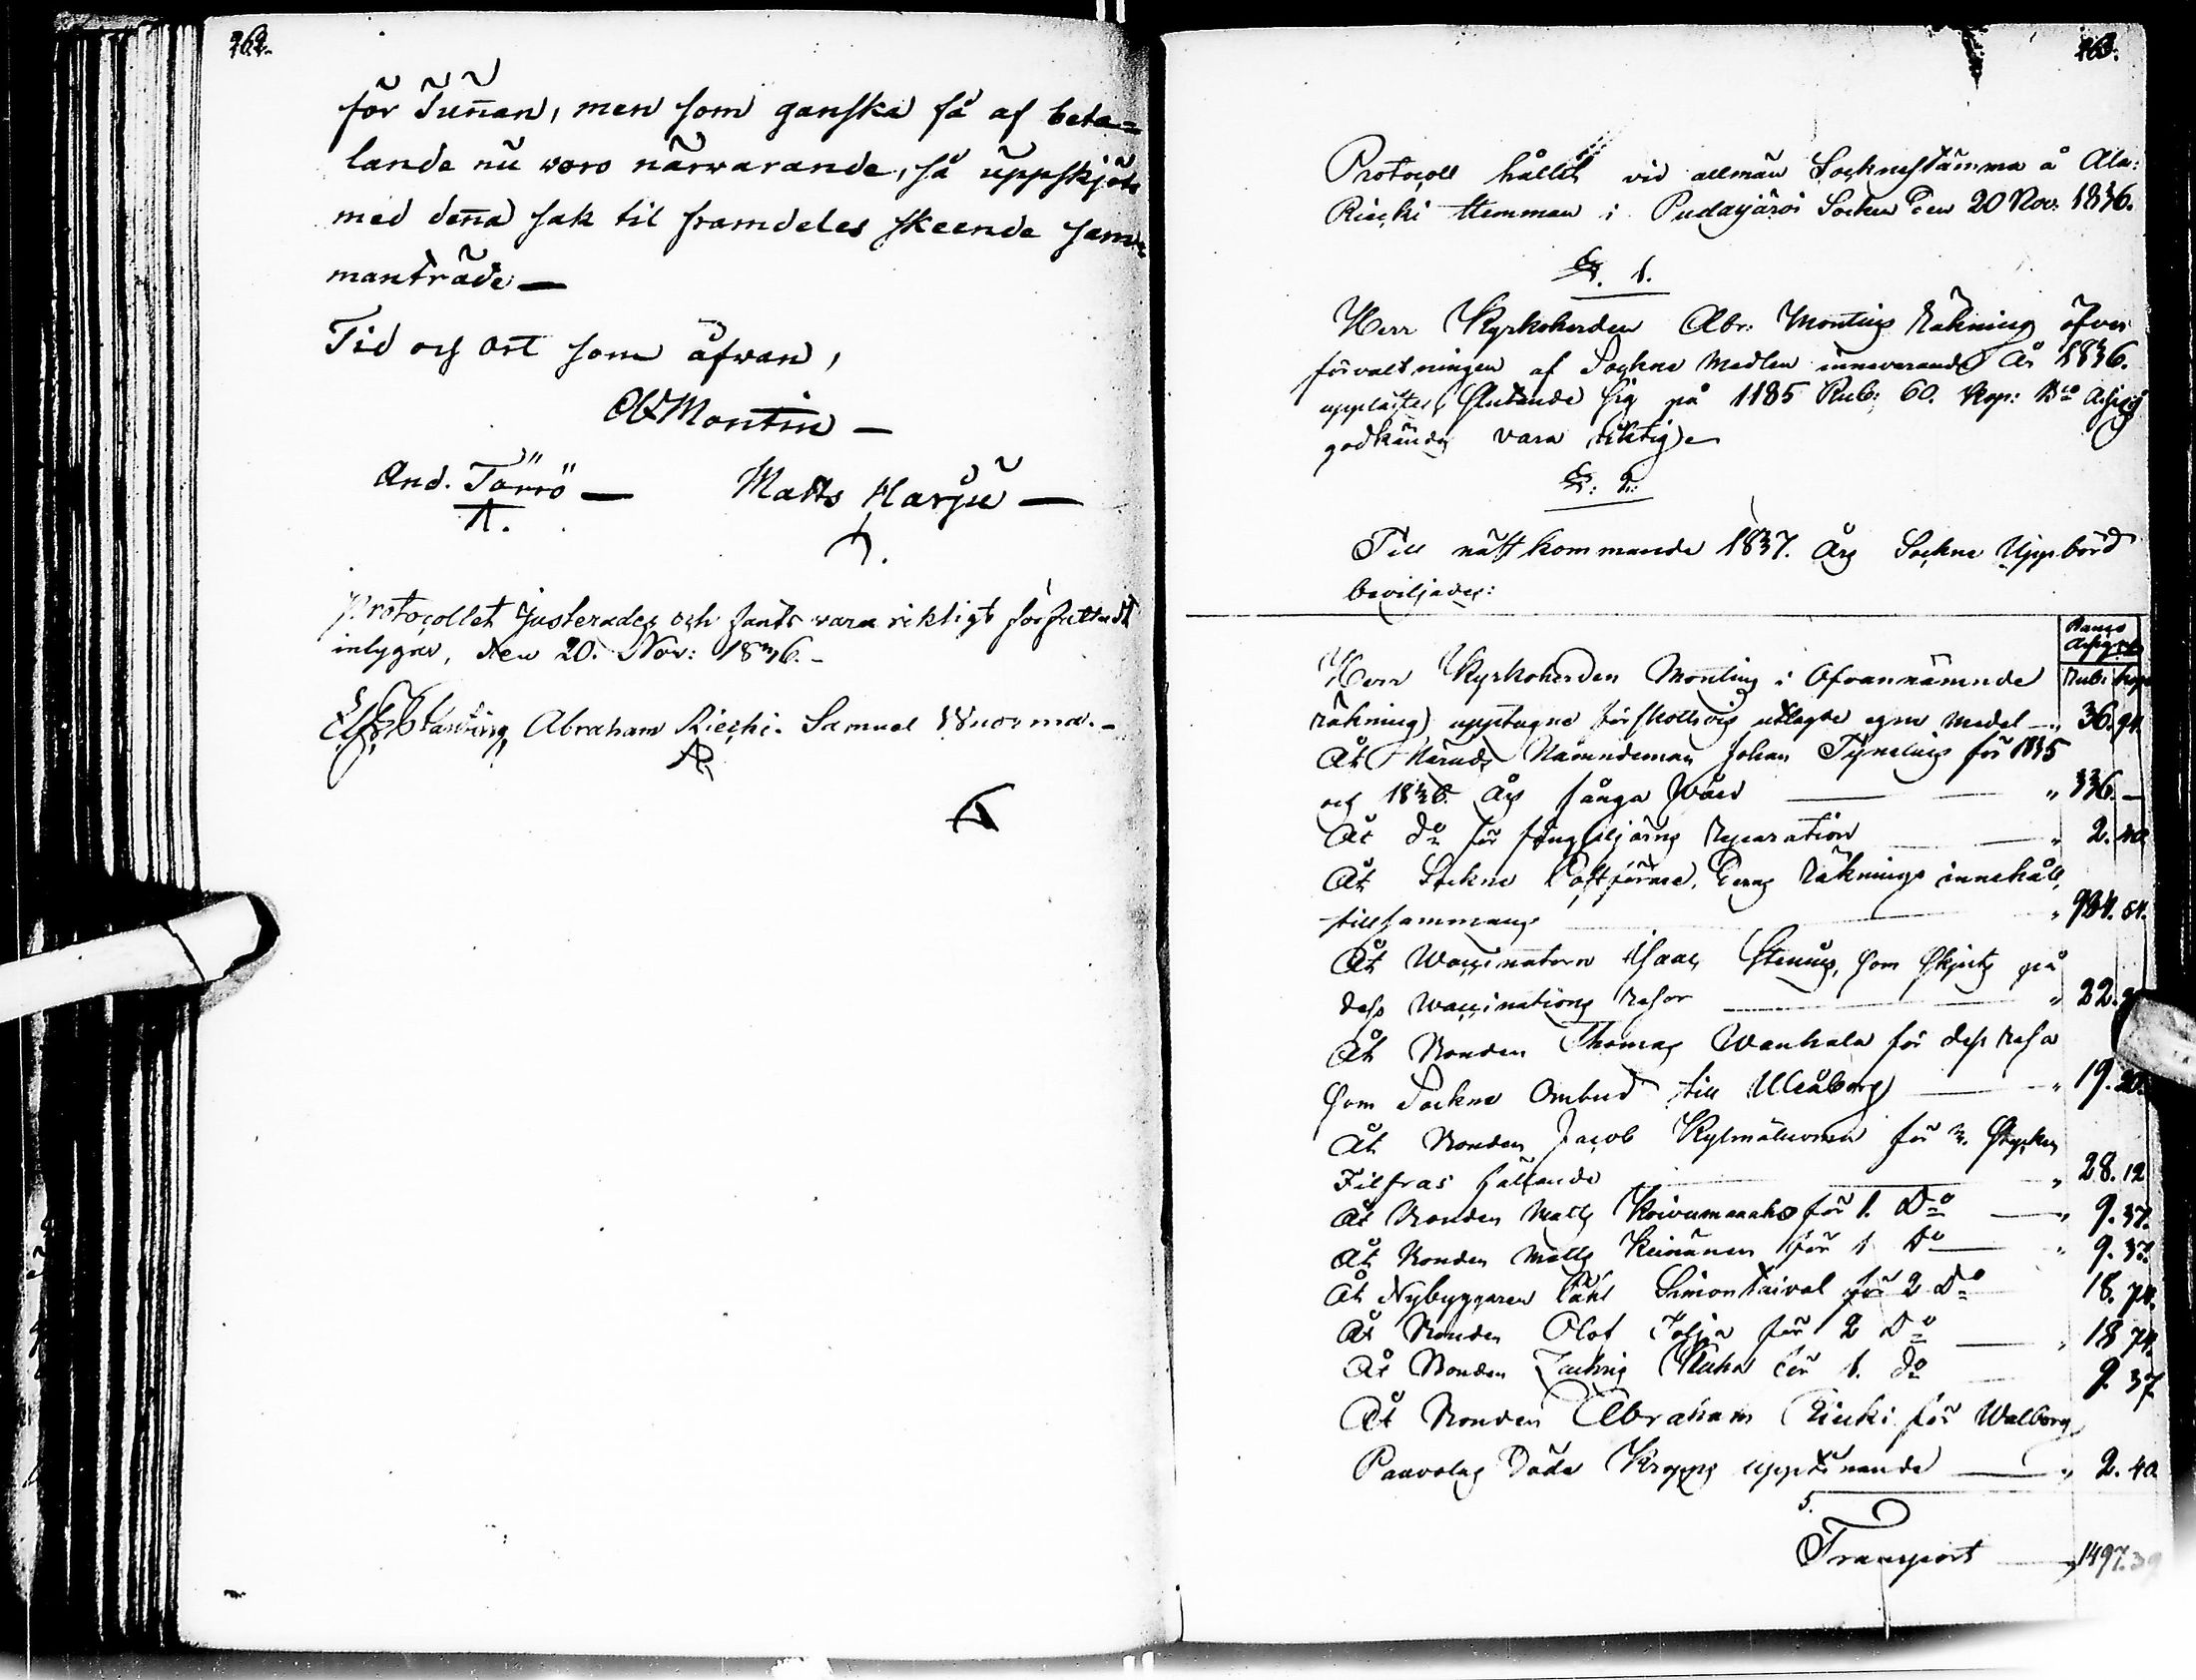 262.
för Tunnan, men som ganska få af beta=
lande nu woro närwarande, så uppskjöts
med denna sak til framdeles skeende sam=
manträde —
Tid och ort som åfwan,
Montin —
And. Törrö — Matts Harju —
Protocollet justerades och fants vara riktigt författadt
intygar, den 20. Nov: 1836. -
Abraham Riecki. Samuel Wuorma. -
263.
Protocoll hållit vid allmän Sockne Stämma å Ala:
Riecki Hemman i Pudasjärvi Socken den 20 Nov: 1836.
§. 1.
Herr Kyrkoherden Abr: Montins Räkning öfver
förvaltningen af Sockne Medlen innevarande År 1836.
upplästes, slutande sig på 1185 Rub: 60. Kop: Bco Assig
godkändes vara riktig
§: 2:
Till nästkommande 1837. Års Sockne Uppbörd
beviljades:
Banco Assigter
Rub: Kop:
Herr Kyrkoherden Montins i Ofvannämnde
räkning upptagne förskottsvis utlagde egne Medel — " 36. 94.
Åt Härads Nämndeman Johan Tynelius för 1835
och 1836. Års fånga Wård — " 336. —
Åt do för Reparation — " 2. 40
Åt Sockne Postförare, Deras Räknings innehåll,
tillsammans — " 984. 54.
Åt Waccinatorn Isaac Stenius, som skjuts på
dess waccinations resor — " 22.
Åt Bonden Thomas Wanhala för dess resa
som Sockne Ombud till Uleåborg — " 19. 20.
Åt Bonden Jacob Kylmäluoma för 3. Stycken
Filfras fällande — " 28. 12
Åt Bonden Matts Koivumaa för 1. Do — " 9. 37.
Åt Bonden Matts Keinänen för 1 Do — " 9. 37.
Åt Nybyggaren Påhl Simontaival för 2 Do 18. 74.
Åt Bonden Olof för 2 Do — " 18 74.
Åt Bonden Zachris för 1. do — 9 37
Åt Bonden Abraham Riecki för Walborg
Paavolas Döda Kropps upptinande — " 2. 40
Transport — " 1497. 39